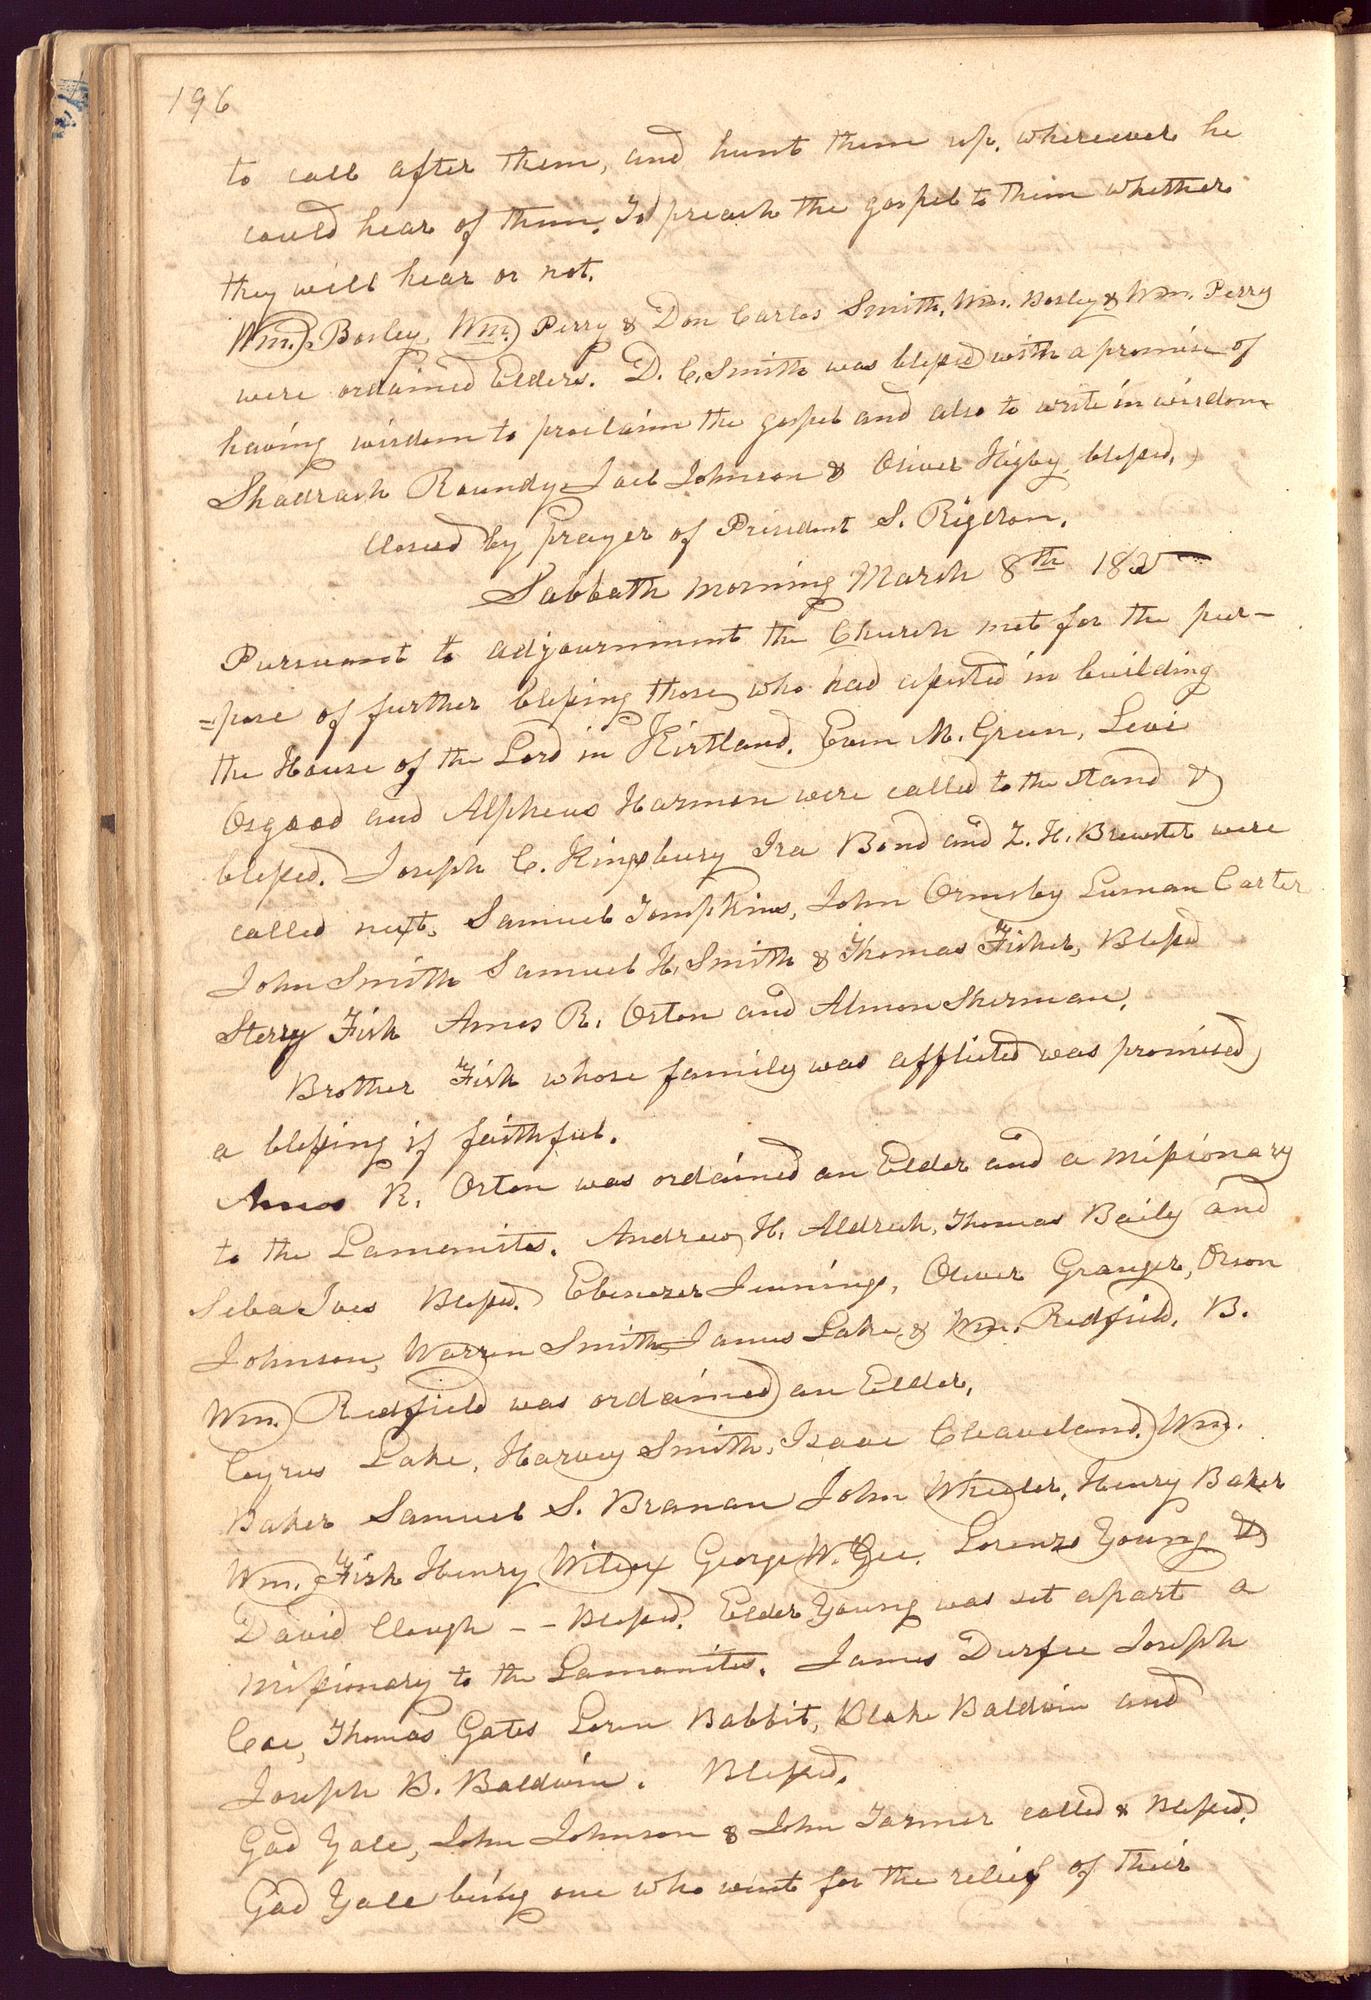 196
to call after them, and hunt them up, whereever he
could hear of them, To preach the gospel to them whether
they will hear or not.
Wm. Bosley, Wm. Perry & Don Carlos Smith, Wm. Bosley & Wm. Perry
were ordained Elders. D. C. Smith was blessed with a promise of
having wisdom to proclaim the gospel and also to write in wisdom
Shadrach Roundy, Joel Johnson & Oliver Higby, blessed,
Closed by prayer of President S. Rigdon.
Sabbath morning March 8th 1835
Pursuant to adjournment the Church met for the pur-
=pose of further blessing those who had assisted in building
the House of the Lord in Kirtland. Evan M. Green, Levi
Osgood and Alpheus Harmon were called to the stand &
blessed. Joseph C. Kingsbury Ira Bond and Z. H. Brewster were
called next, Samuel Tompkins, John Ormsby Luman Carter
John Smith Samuel H. Smith & Thomas Fisher, Blessed
Sterry Fisk Amos R. Orton and Almon Sherman.
Brother Fisk whose family was afflicted was promised
a blessing if faithful.
Amos R. Orton was ordained an Elder and a missionary
to the Lamenites. Andrew H. Aldrich, Thomas Baily and
Seba Ives Blessed. Ebenezer Jennings, Oliver Granger, Orson
Johnson, Warren Smith James Lake, & Wm. Redfield, B.
Wm. Redfield was ordained an Elder,
Cyrus Lake, Harvey Smith, Isaac Cleaveland, Wm.
Baker Samuel S. Branan John Wheeler, Henry Baker
Wm. Fisk Henry Wilcox George W. Gee. Lorenzo Young &
David Clough -- Blessed. Elder Young was set apart a
missionary to the Lamanites. James Durfee Joseph
Coe, Thomas Gates Loren Babbit, Blake Baldwin and
Joseph B. Baldwin. Blessed.
Gad Yale, John Johnson & John Tarmer called & Blessed.
Gad Yale being one who went for the relief of their